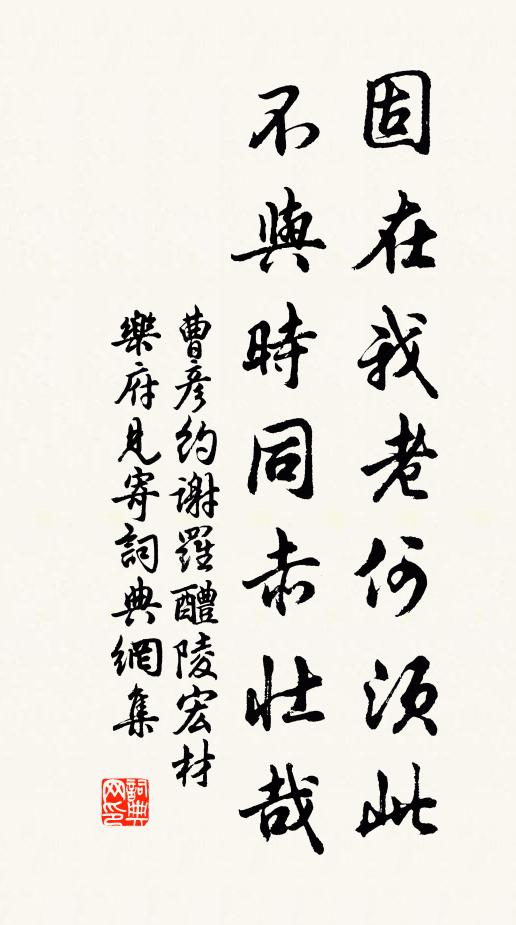 固在我老何須此
不與時同赤壯哉
曹彥約謝羅醴陵宏材
樂府見寄詞典網集
詞典网印